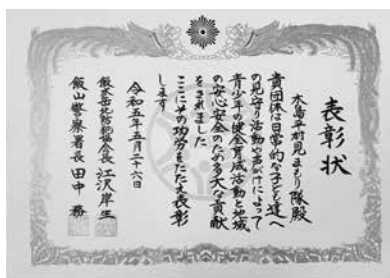 表彰状
木島平村見まもり隊殿
貴団体は日常的な子ども達へ
の見守り活動や声がけによって
青少年の健全育成活動と地域
の安心安全のため多大な貢献
をされました
ここにその功労をたたえ表彰
します
令和五年五月二十六日
飯水岳北防犯協会長 江沢岸生
飯山警察署長 田中務